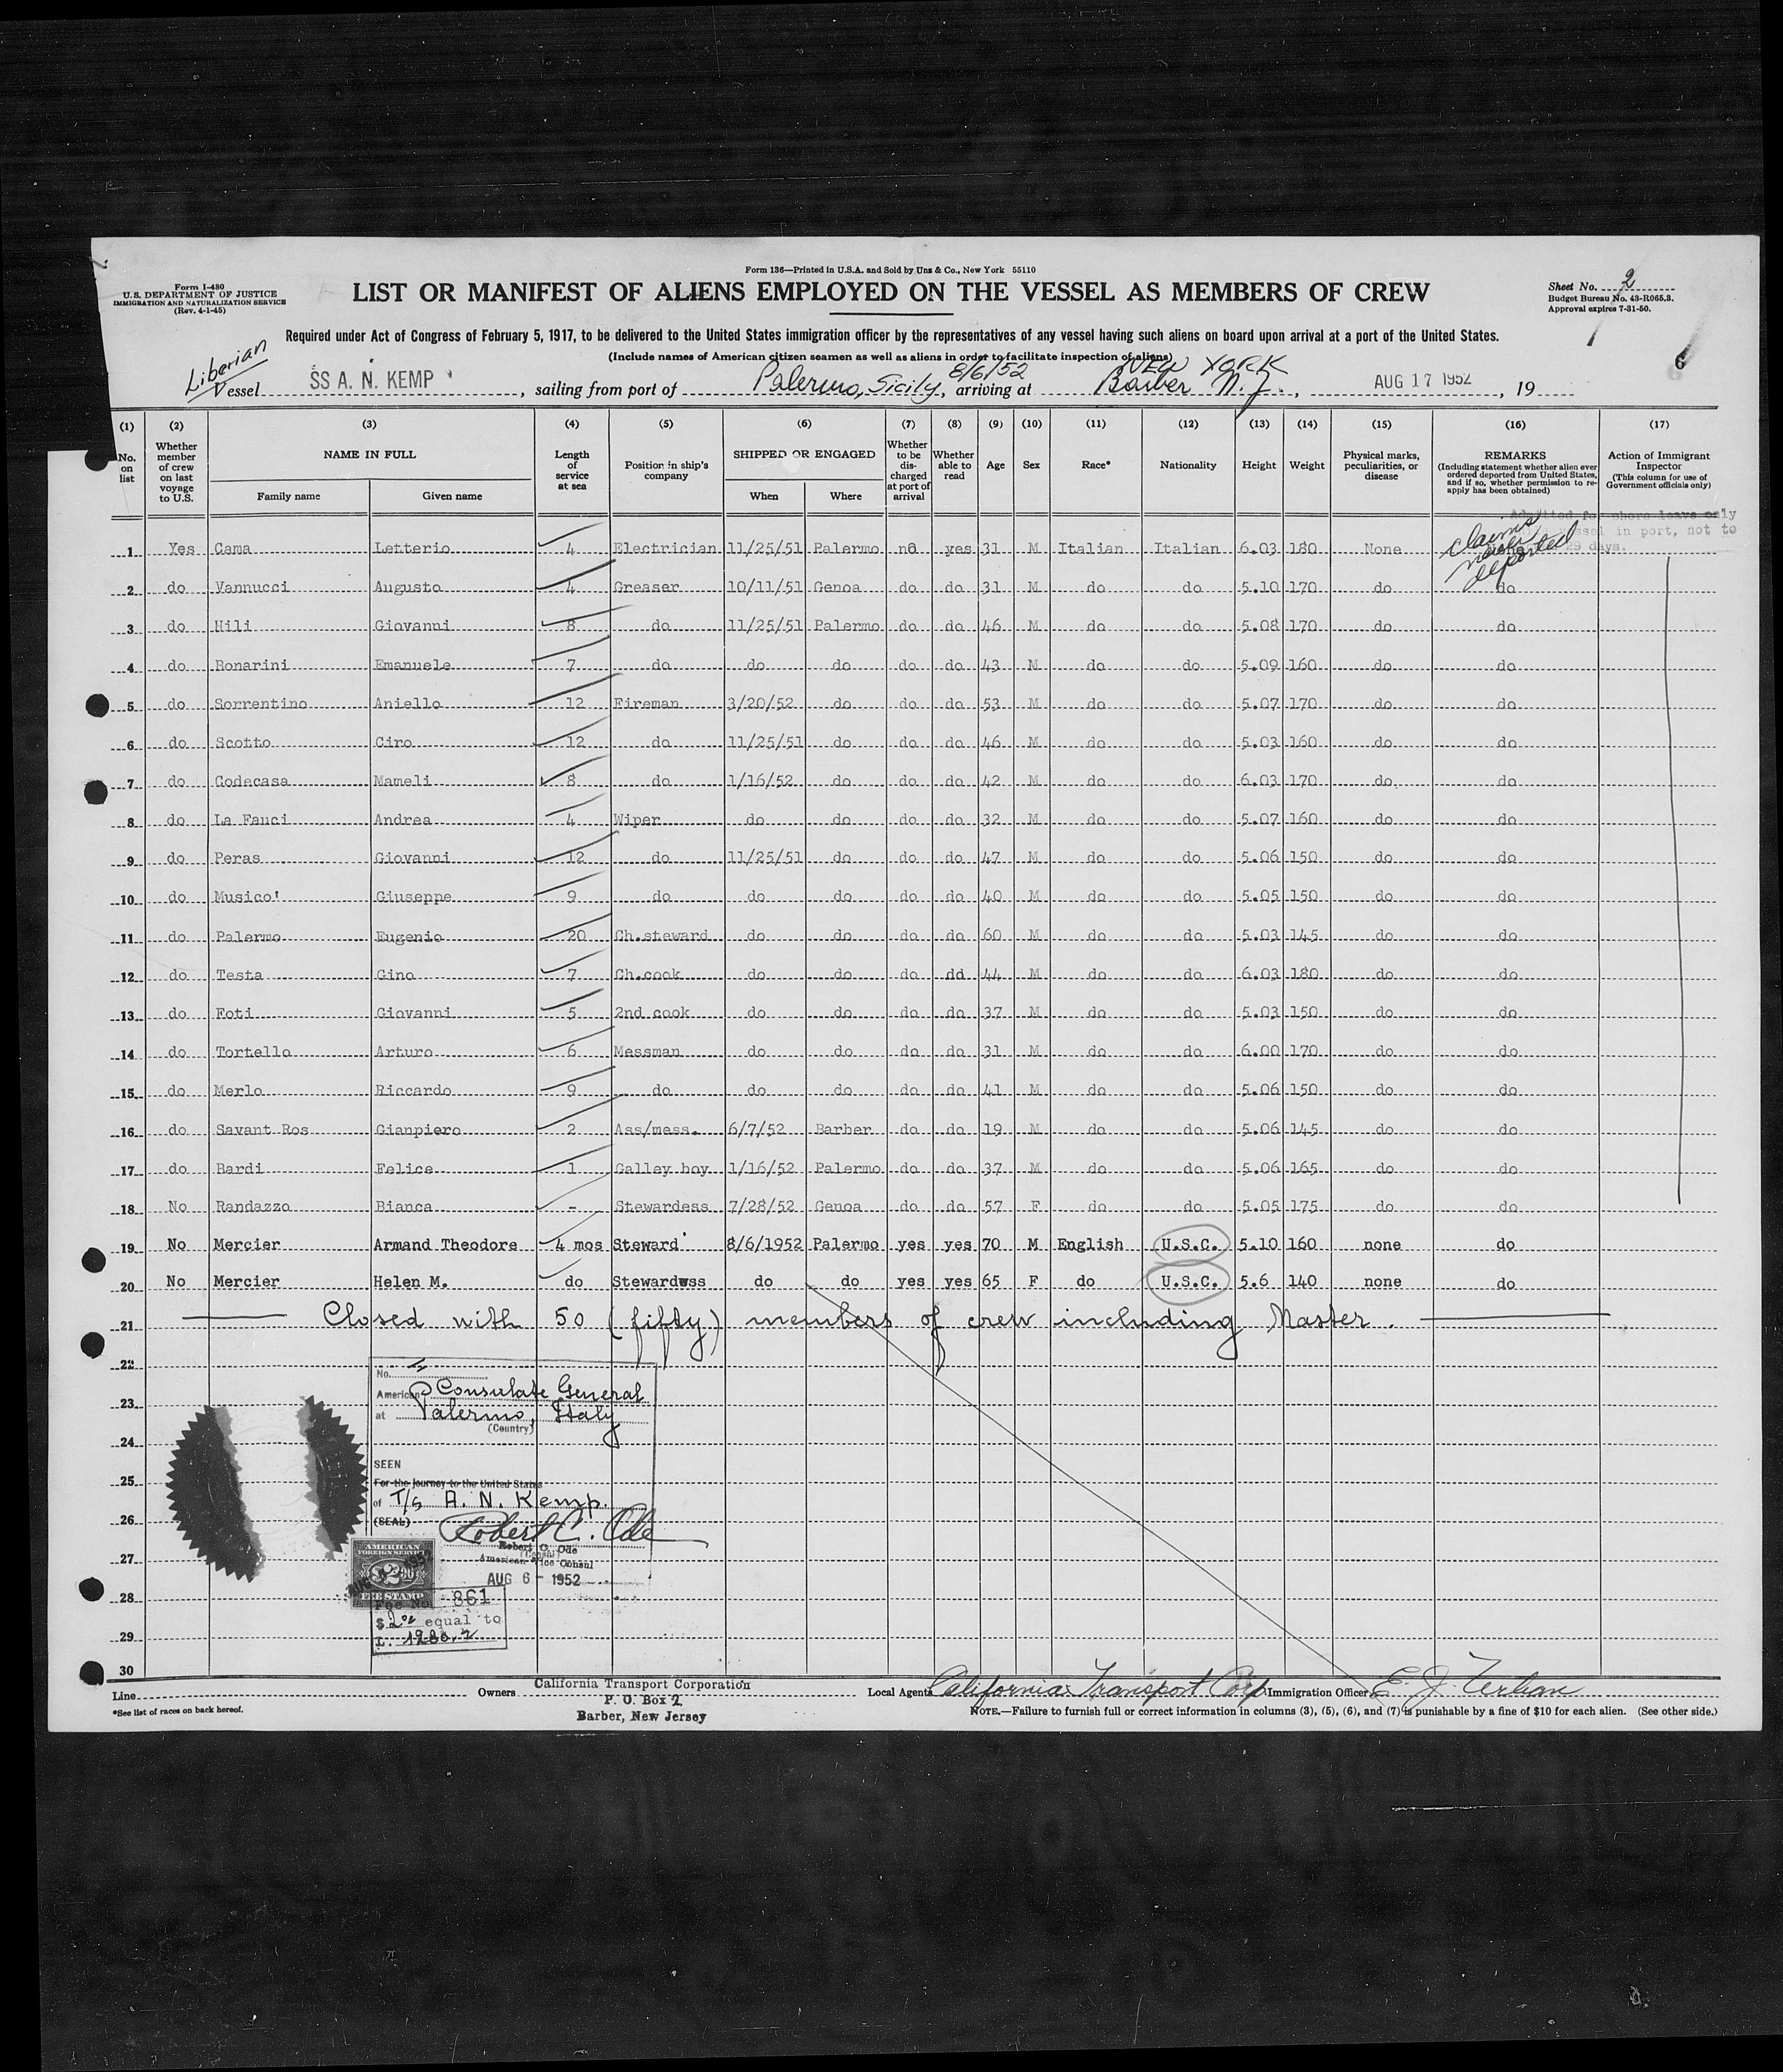 Form 136—Printed in U.S.A. and Sold by Unz & Co., New York 55110
Form I-480
U.S. DEPARTMENT OF JUSTICE
IMMIGRATION AND NATURALIZATION SERVICE
(Rev. 4-1-45)
LIST OR MANIFEST OF ALIENS EMPLOYED ON THE VESSEL AS MEMBERS OF CREW
Sheet No. 2
Budget Bureau No. 43-R065.3.
Approval expires 7-31-50.
Required under Act of Congress of February 5, 1917, to be delivered to the United States immigration officer by the representatives of any vessel having such aliens on board upon arrival at a port of the United States.
(Include names of American citizen seamen as well as aliens in order to facilitate inspection of aliens)
Liberian 8/6/52 NEW YORK 6
Vessel SS A. N. KEMP, sailing from port of Palermo, Sicily, arriving at Barber N.J., AUG 17 1952, 19
(1) (2) (3) (4) (5) (6) (7) (8) (9) (10) (11) (12) (13) (14) (15) (16) (17)
No. on list Whether member of crew on last voyage to U.S. NAME IN FULL Family name Given name Length of service at sea Position in ship's company SHIPPED OR ENGAGED When Where Whether to be discharged at port of arrival Whether able to read Age Sex Race* Nationality Height Weight Physical marks, peculiarities, or disease REMARKS (Including statement whether alien ever ordered deported from United States, and if so, whether permission to reapply has been obtained) Action of Immigrant Inspector (This column for use of Government officials only)
Admitted for shore leave only
in port, not to
29 days.
claims never deported
1 Yes Cama Letterio 4 Electrician 11/25/51 Palermo no yes 31 M Italian Italian 6.03 180 None
2 do Vannucci Augusto 4 Greaser 10/11/51 Genoa do do 31 M do do 5.10 170 do do
3 do Hili Giovanni 8 do 11/25/51 Palermo do do 46 M do do 5.08 170 do do
4 do Bonarini Emanuele 7 do do do do do 43 M do do 5.09 160 do do
5 do Sorrentino Aniello 12 Fireman 3/20/52 do do do 53 M do do 5.07 170 do do
6 do Scotto Ciro 12 do 11/25/51 do do do 46 M do do 5.03 160 do do
7 do Codecasa Mameli 8 do 1/16/52 do do do 42 M do do 6.03 170 do do
8 do La Fauci Andrea 4 Wiper do do do do 32 M do do 5.07 160 do do
9 do Peras Giovanni 12 do 11/25/51 do do do 47 M do do 5.06 150 do do
10 do Musico' Giuseppe 9 do do do do do 40 M do do 5.05 150 do do
11 do Palermo Eugenio 20 Ch.steward do do do do 60 M do do 5.03 145 do do
12 do Testa Gino 7 Ch.cook do do do dd 44 M do do 6.03 180 do do
13 do Foti Giovanni 5 2nd cook do do do do 37 M do do 5.03 150 do do
14 do Tortello Arturo 6 Messman do do do do 31 M do do 6.00 170 do do
15 do Merlo Riccardo 9 do do do do do 41 M do do 5.06 150 do do
16 do Savant Ros Gianpiero 2 Ass/mess. 6/7/52 Barber do do 19 M do do 5.06 145 do do
17 do Bardi Felice 1 Galley boy 1/16/52 Palermo do do 37 M do do 5.06 165 do do
18 No Randazzo Bianca - Stewardess 7/28/52 Genoa do do 57 F do do 5.05 175 do do
19 No Mercier Armand Theodore 4 mos Steward 8/6/1952 Palermo yes yes 70 M English U.S.C. 5.10 160 none do
20 No Mercier Helen M. do Stewardess do do yes yes 65 F do U.S.C. 5.6 140 none do
21 Closed with 50 (fifty) members of crew including Master.
22
23
24
25
26
27
28
29
30
No.
American Consulate General
at Palermo, Italy
(Country)
SEEN
For the journey to the United States
of T/s A. N. Kemp.
(SEAL) Robert C. Ode
Robert C. Ode
(Consul)
American Vice Consul
AUG 6 - 1952
AMERICAN
FOREIGN SERVICE
$2.00
FEE STAMP
Fee No. 861
$2.00 equal to
L.
Line Owners California Transport Corporation
P. O. Box 2
Barber, New Jersey
Local Agents California Transport Corp. Immigration Officer
*See list of races on back hereof.
NOTE.—Failure to furnish full or correct information in columns (3), (5), (6), and (7) is punishable by a fine of $10 for each alien. (See other side.)